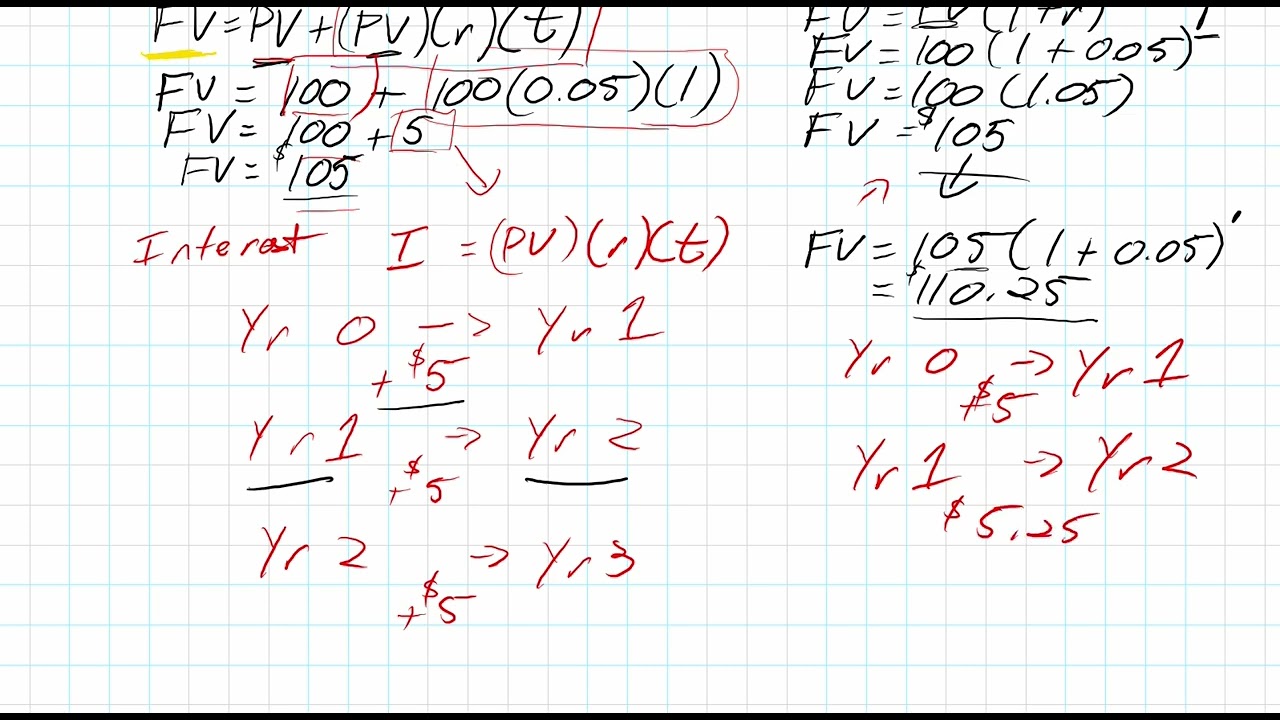 FV=PV+(PV)(r)(t)
FV = 100 + 100(0.05)(1)
FV = 100 + 5
FV = $105
Interest I = (PV)(r)(t)
Yr 0 -> Yr 1
+$5
Yr 1 -> Yr 2
+$5
Yr 2 -> Yr 3
+$5
FV = PV(1+r)
FV = 100(1+0.05)
FV = 100(1.05)
FV = $105
FV = 105(1+0.05)
= $110.25
Yr 0 -> Yr 1
+$5
Yr 1 -> Yr 2
$5.25